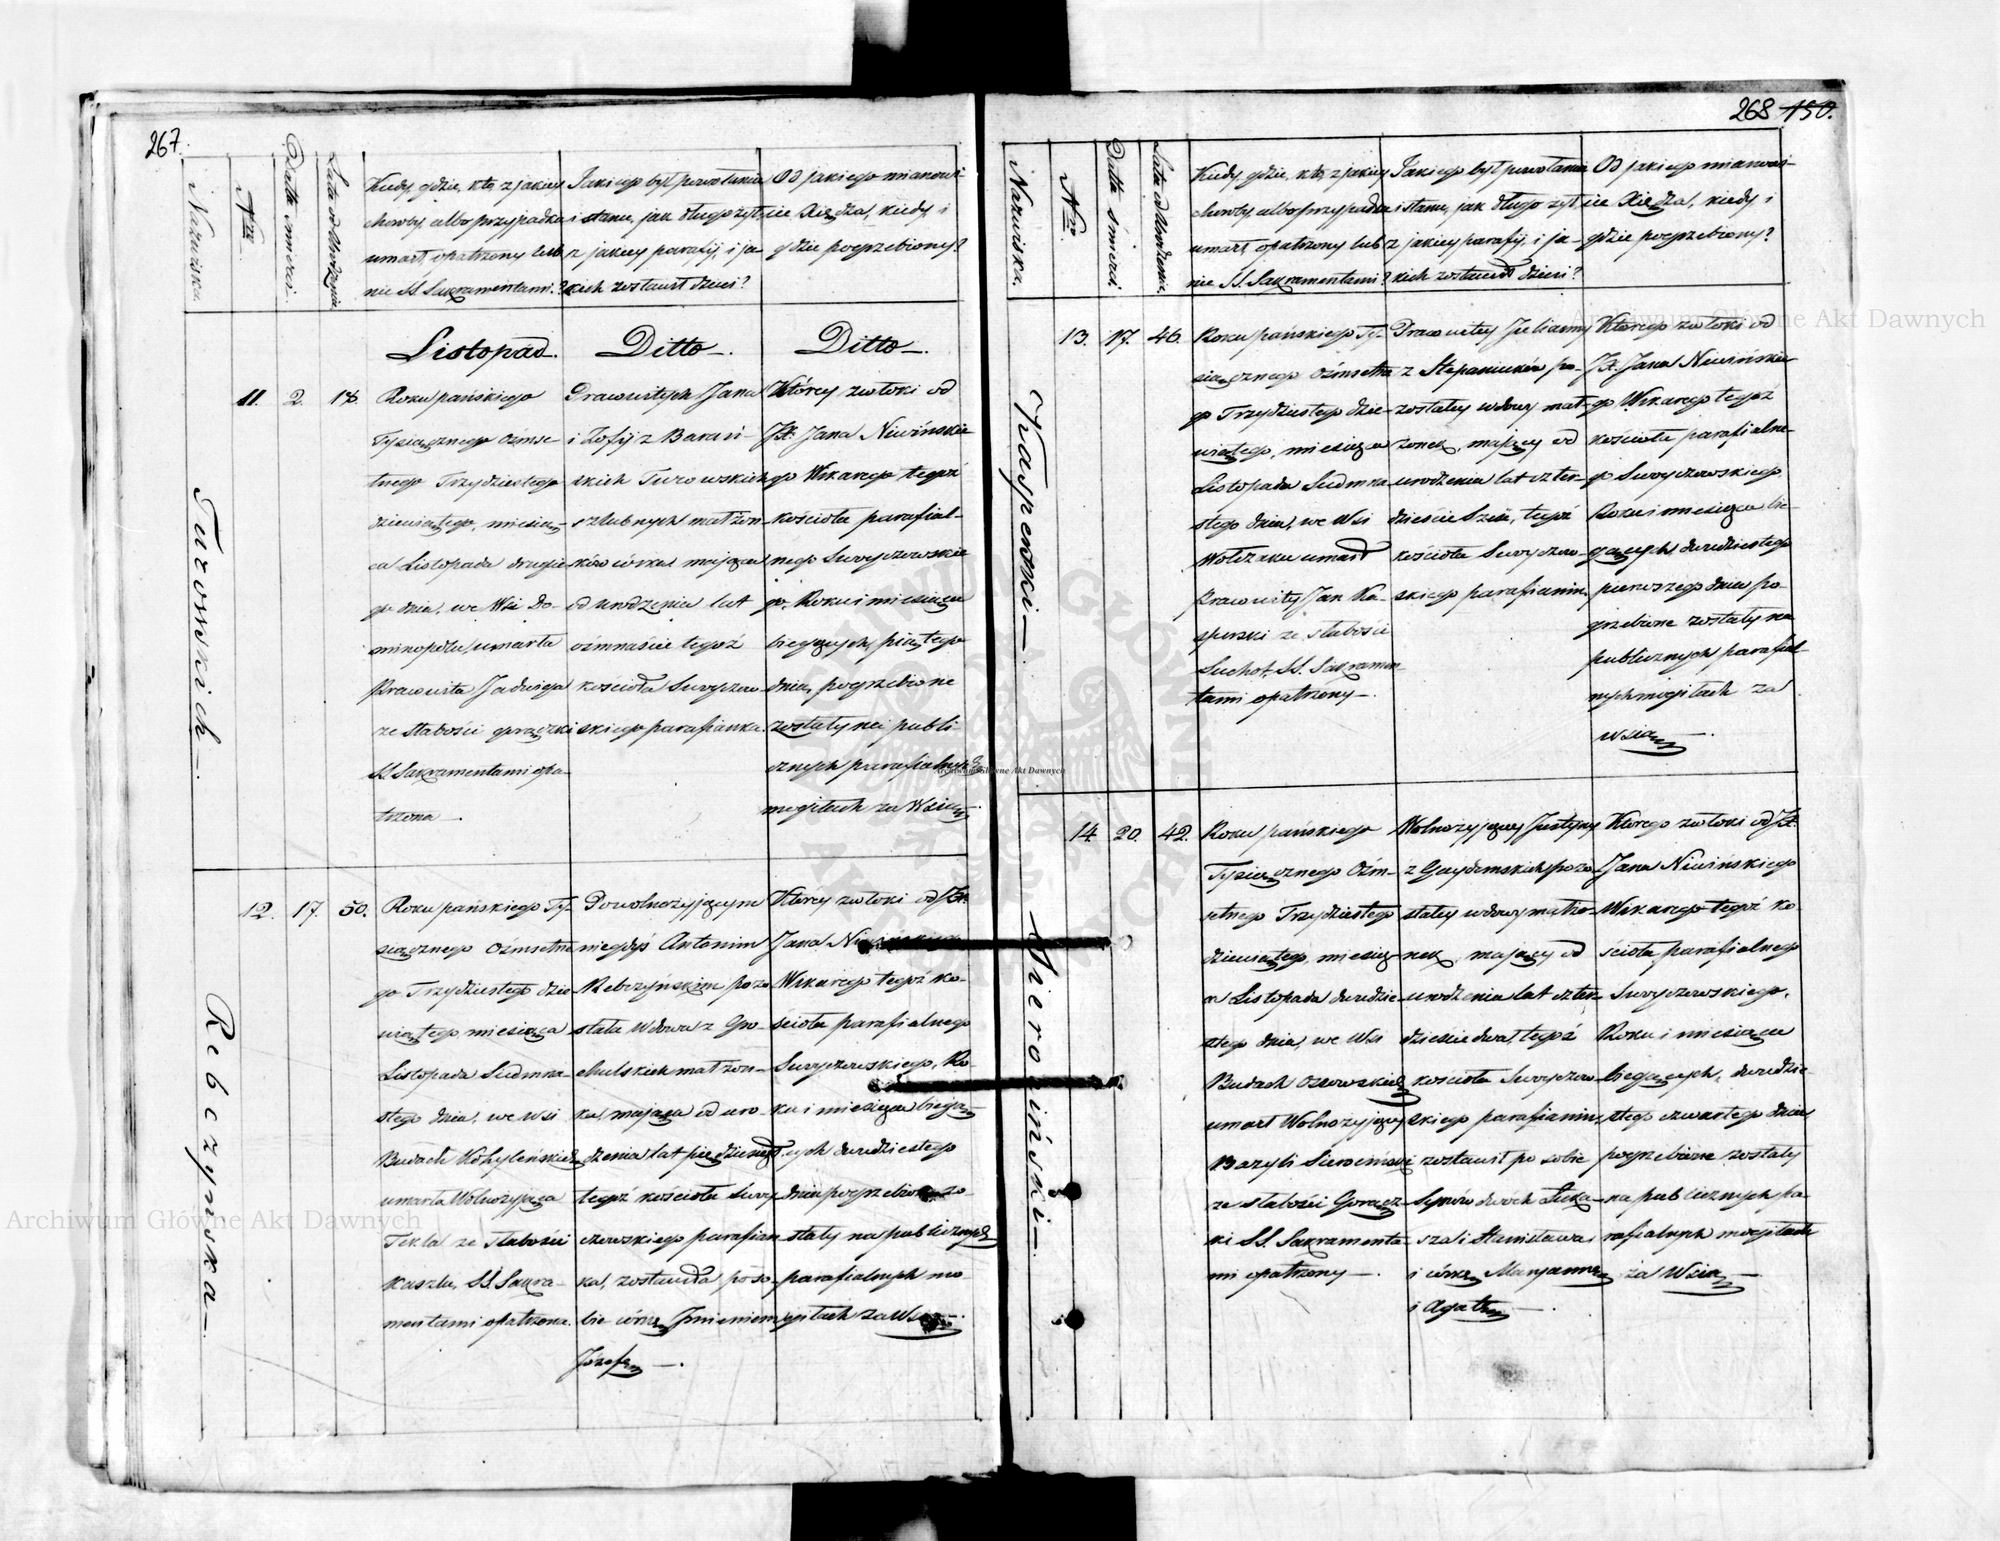 267.
Nazwiska
Nro
Datta śmierci
Lata od urodzenia
Kiedy, gdzie, kto, z jakiey
choroby albo przypadku
umarł, opatrzony lub
nie SS. Sakramentami?
Jakiego był powołania
i stanu, jak długo żył,
z jakiey parafij, i ja-
kich zostawił dzieci?
Od jakiego mianowi-
cie Xiędza, kiedy, i
gdzie pogrzebiony?
Listopad.
Ditto.
Ditto.
Turowskich
11.
2.
18.
Roku pańskiego
Tysiącznego Ośmse-
tnego Trzydziestego
dziewiątego, miesią-
ca Listopada drugie-
go dnia, we Wsi Do-
minopolu, umarła
Prawowita Jadwiga
ze słabości gorączki
SS. Sakramentami opa-
trzona.
Prawowitych Jana
i Zofij z Barań-
skich Turowskich
szlubnych małżon-
ków córka mająca
od urodzenia lat
ośmnaście tegoż
kościoła Swoyczow-
skiego parafianka.
Którey zwłoki od
JX. Jana Niwińskie-
go Wikarego tegoż
kościoła parafial-
nego Swoyczowskie-
go, Roku i miesiąca
bieżących, piątego
dnia, pogrzebione
zostały na publi-
cznych parafialnych
mogiłach za Wsią.
Rebczyńska
12.
17.
50.
Roku pańskiego Ty-
siącznego Ośmsetne-
go Trzydziestego dzie-
wiątego miesiąca
Listopada Siedmna-
stego dnia, we wsi
Budach Kohyleńskich
umarła Wolnożyjąca
Tekla ze słabości
kaszlu, SS. Sakra-
mentami opatrzona.
Po wolnożyjącym
niegdyś Antonim
Rebczyńskim pozo-
stała Wdowa z Gro-
chulskich małżon-
ka, mająca od uro-
dzenia lat pięćdziesiąt
tegoż kościoła Swoy-
czowskiego parafian-
ka, zostawiła po so-
bie córkę Jmieniem
Józefę.
Którey zwłoki od JX.
Jana Niwińskiego
Wikarego tegoż ko-
ścioła parafialnego
Swoyczowskiego, Ro-
ku i miesiąca bieżą-
cych dwudziestego
dnia pogrzebione zo-
stały na publicznych
parafialnych mo-
giłach za Wsią.
268 150.
Nazwiska.
Nro.
Datta śmierci
Lata od urodzenia
Kiedy, gdzie, kto, z jakiey
choroby, albo przypadku
umarł, opatrzony lub
nie SS. Sakramentami?
Jakiego był powołania
i stanu, jak długo żył
z jakiey parafij, i ja-
kich zostawił dzieci?
Od jakiego mianowi-
cie Xiędza, kiedy, i
gdzie pogrzebiony?
Kasperski
13.
17.
46.
Roku pańskiego Ty-
siącznego Ośmsetne-
go Trzydziestego dzie-
wiątego, miesiąca
Listopada Siedmna-
stego dnia, we Wsi
Wołczaku umarł
prawowity Jan Ka-
sperski ze słabości
Suchot, SS. Sakramen-
tami opatrzony.
Prawowitey Julianny
z Stepaniuków po-
zostałey wdowy mał-
żonek, mający od
urodzenia lat czter-
dzieście Sześć, tegoż
kościoła Swoyczow-
skiego parafianin.
Którego zwłoki od
JX. Jana Niwińskie-
go Wikarego tegoż
kościoła parafialne-
go Swoyczowskiego,
Roku i miesiąca bie-
żących dwudziestego
pierwszego dnia po-
grzebione zostały na
publicznych parafial-
nych mogiłach za
wsią.
Sierociński
14.
20.
42.
Roku pańskiego
Tysiącznego Ośm-
setnego Trzydziestego
dziewiątego, miesią-
ca Listopada dwudzie-
stego dnia, we Wsi
Budach Ossowskich
umarł Wolnożyjący
Bazyli Sierociński
ze słabości Gorącz-
ki SS. Sakramenta-
mi opatrzony.
Wolnożyjącey Justyny
z pozo-
stałey wdowy małżo-
nek, mający od
urodzenia lat czter-
dzieście dwa, tegoż
kościoła Swoyczow-
skiego parafianin,
zostawił po sobie
Synów dwóch Łuka-
sza i Stanisława
i córkę Maryannę
i Agatę.
Którego zwłoki od JX.
Jana Niwińskiego
Wikarego tegoż ko-
ścioła parafialnego
Swoyczowskiego,
Roku i miesiąca
bieżących, dwudzie-
stego czwartego dnia
pogrzebione zostały
na publicznych pa-
rafialnych mogiłach
za Wsią.
Archiwum Główne Akt Dawnych
Archiwum Główne Akt Dawnych
Archiwum Główne Akt Dawnych